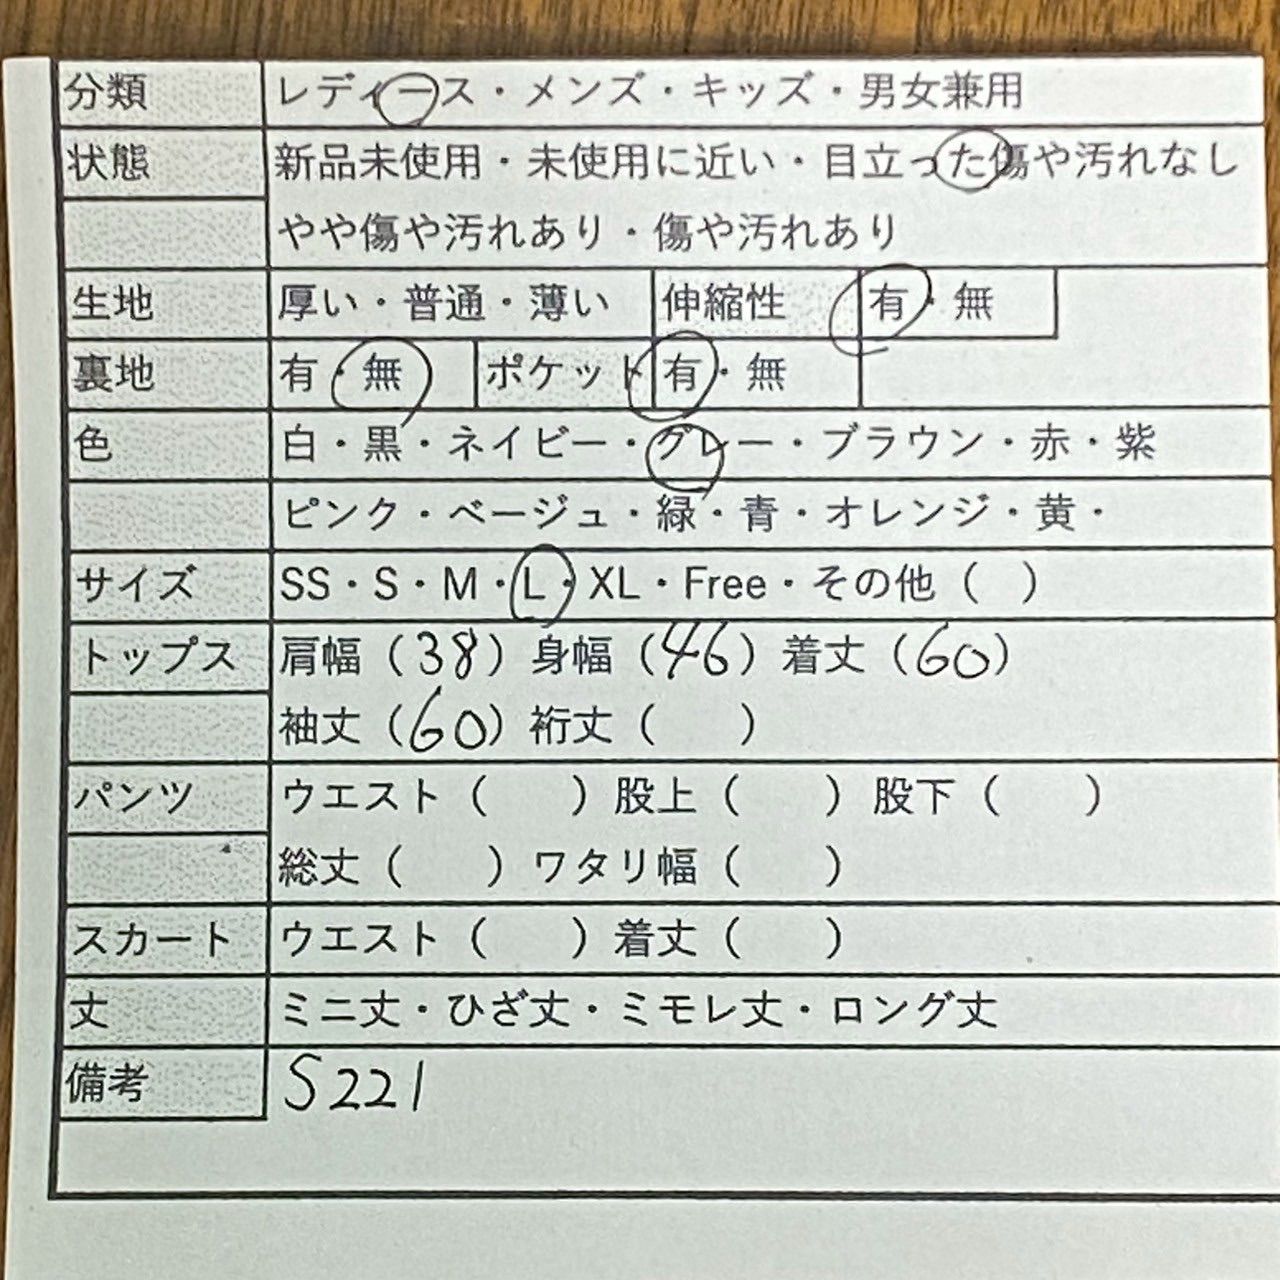 分類 レディース・メンズ・キッズ・男女兼用
状態 新品未使用・未使用に近い・目立った傷や汚れなし
やや傷や汚れあり・傷や汚れあり
生地 厚い・普通・薄い 伸縮性 有・無
裏地 有・無 ポケット 有・無
色 白・黒・ネイビー・グレー・ブラウン・赤・紫
ピンク・ベージュ・緑・青・オレンジ・黄・
サイズ SS・S・M・L・XL・Free・その他（ ）
トップス 肩幅（38）身幅（46）着丈（60）
袖丈（60）裄丈（ ）
パンツ ウエスト（ ）股上（ ）股下（ ）
総丈（ ）ワタリ幅（ ）
スカート ウエスト（ ）着丈（ ）
丈 ミニ丈・ひざ丈・ミモレ丈・ロング丈
備考 S221